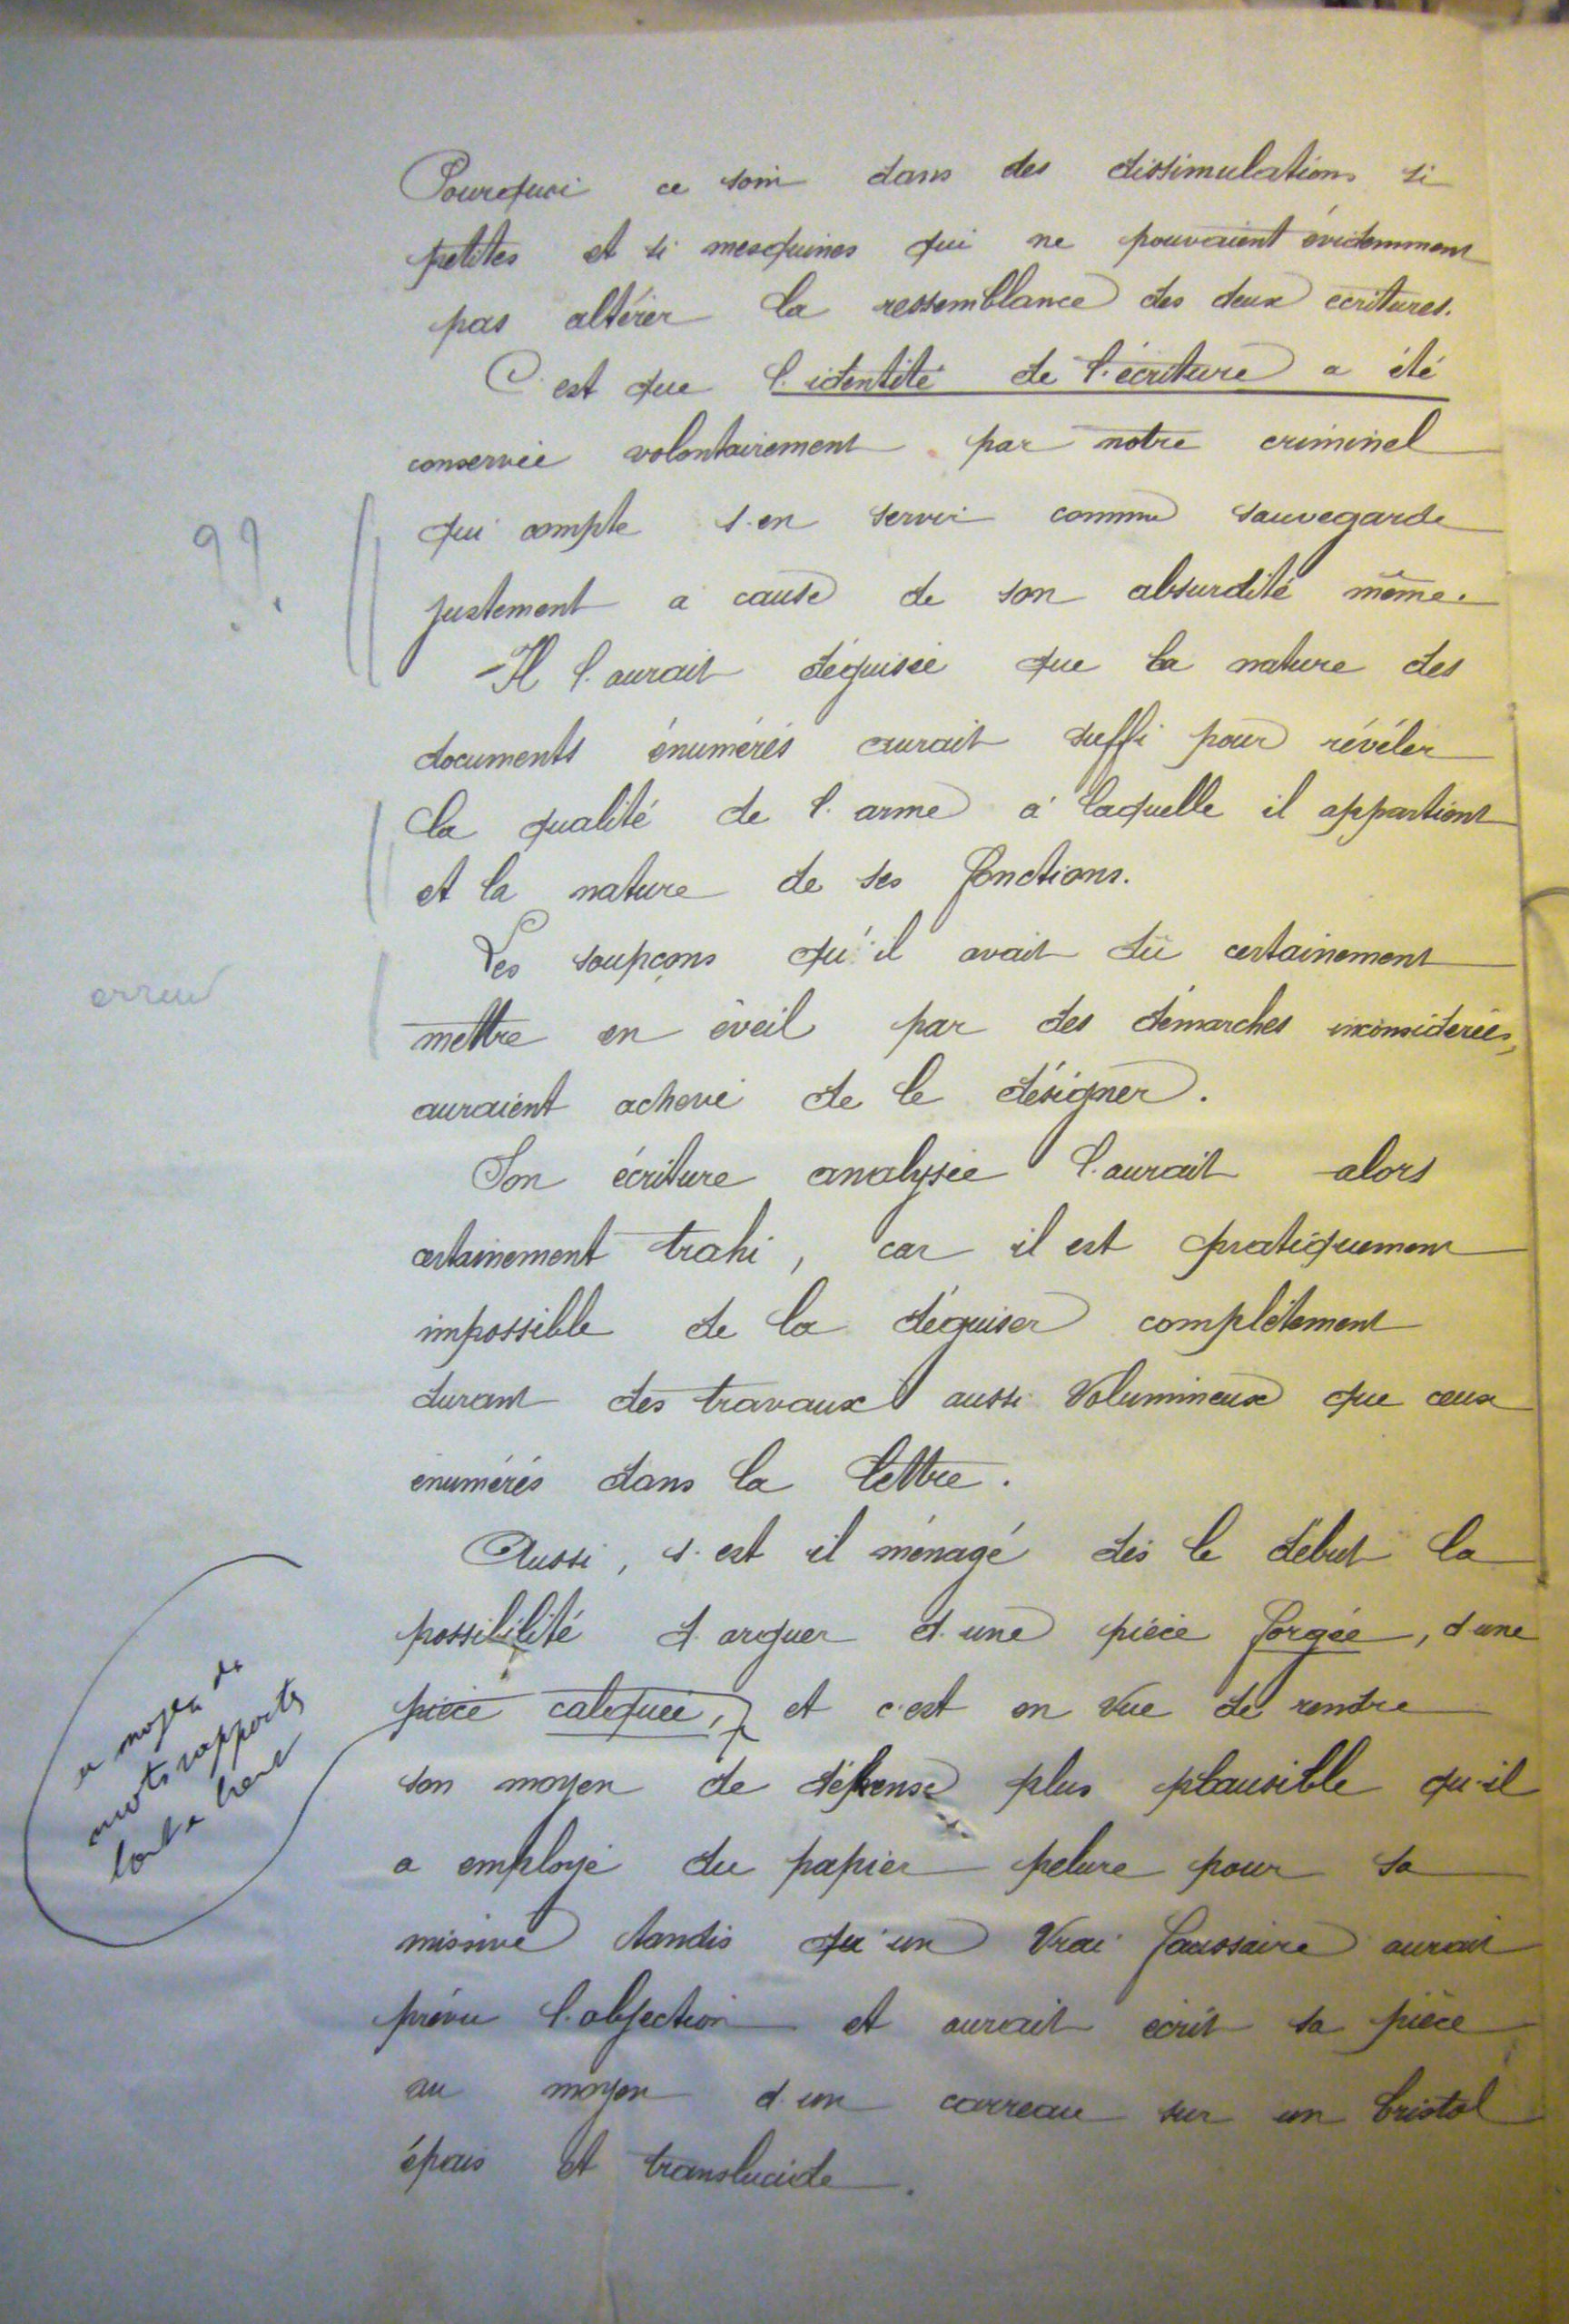 Pourquoi ce soin dans des dissimulations si
petites et si mesquines qui ne pouvaient évidemment
pas altérer la ressemblance des deux écritures.
C'est que l'identité de l'écriture a été
conservée volontairement par notre criminel
qui compte s'en servir comme sauvegarde
??
justement a cause de son absurdité même.
- Il l'aurait déguisée que la nature des
documents énumérés aurait suffi pour révéler
la qualité de l'arme à laquelle il appartient
et la nature de ses fonctions.
Les soupçons qu'il avait dû certainement
erreur
mettre en éveil par des démarches inconsidérées,
auraient achevé de le désigner.
Son écriture analysée l'aurait alors
certainement trahi, car il est pratiquement
impossible de la déguiser complètement
durant des travaux aussi volumineux que ceux
énumérés dans la lettre.
Aussi, s'est il ménagé dès le début la
possibilité d'arguer d'une pièce forgée, d'une
pièce calquée, et c'est en vue de rendre
au moyen de
mots rapportés
bout a bout
son moyen de défense plus plausible qu'il
a employé du papier pelure pour sa
missive tandis qu'un vrai faussaire aurait
prévu l'objection et aurait écrit sa pièce
au moyen d'un carreau sur un bristol
épais et translucide.